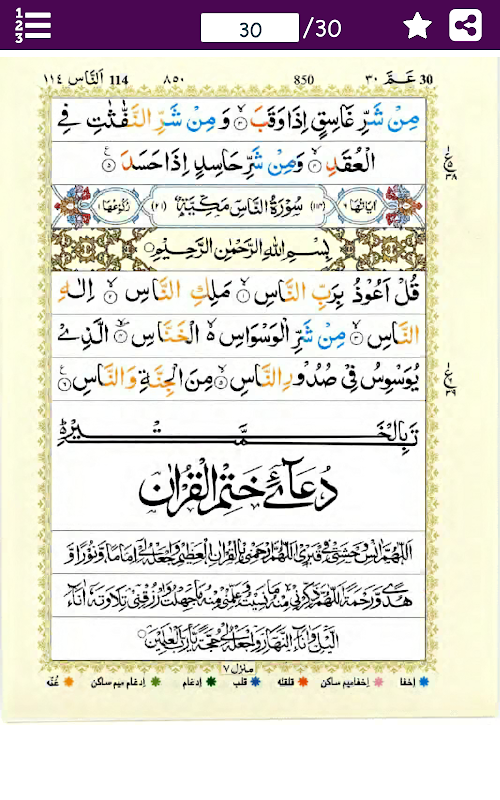 30 /30
30 عَـمَّ ٣٠ 850 ٨٥٠ 114 اَلنَّاس ١١٤
مِنْ شَرِّ غَاسِقٍ اِذَا وَقَبَ ۙ﴿۳﴾ وَ مِنْ شَرِّ النَّفّٰثٰتِ فِي
الْعُقَدِ ۙ﴿۴﴾ وَمِنْ شَرِّ حَاسِدٍ اِذَا حَسَدَ ﴿۵﴾
اٰيَاتُهَا ٦ (١١٤) سُوْرَةُ النَّاسِ مَكِّيَّةٌ (٢١) رُكُوْعُهَا ١
بِسْمِ اللّٰهِ الرَّحْمٰنِ الرَّحِيْمِ
قُلْ اَعُوْذُ بِرَبِّ النَّاسِ ۙ﴿۱﴾ مَلِكِ النَّاسِ ۙ﴿۲﴾ اِلٰهِ
النَّاسِ ۙ﴿۳﴾ مِنْ شَرِّ الْوَسْوَاسِ ۙ۬ الْخَنَّاسِ ۙ﴿۴﴾ الَّذِيْ
يُوَسْوِسُ فِيْ صُدُوْرِ النَّاسِ ۙ﴿۵﴾ مِنَ الْجِنَّةِ وَالنَّاسِ ﴿۶﴾
ع ٣٨
ع ٣٩
تَمَّتْ بِالْخَيْرِ
دُعَآئے خَتْمِ الْقُرْاٰن
اَللّٰهُمَّ اٰنِسْ وَحْشَتِيْ فِيْ قَبْرِيْ اَللّٰهُمَّ ارْحَمْنِيْ بِالْقُرْاٰنِ الْعَظِيْمِ وَاجْعَلْهُ لِيْ اِمَامًا وَّنُوْرًا وَّ
هُدًى وَّرَحْمَةً اَللّٰهُمَّ ذَكِّرْنِيْ مِنْهُ مَا نَسِيْتُ وَعَلِّمْنِيْ مِنْهُ مَا جَهِلْتُ وَارْزُقْنِيْ تِلَاوَتَهٗ اٰنَآءَ
الَّيْلِ وَاٰنَآءَ النَّهَارِ وَاجْعَلْهُ لِيْ حُجَّةً يَّا رَبَّ الْعٰلَمِيْنَ
منزل ٧
اِخفا اِخفامیم ساکن قلقلہ قلب اِدغام اِدغام میم ساکن غُنّه